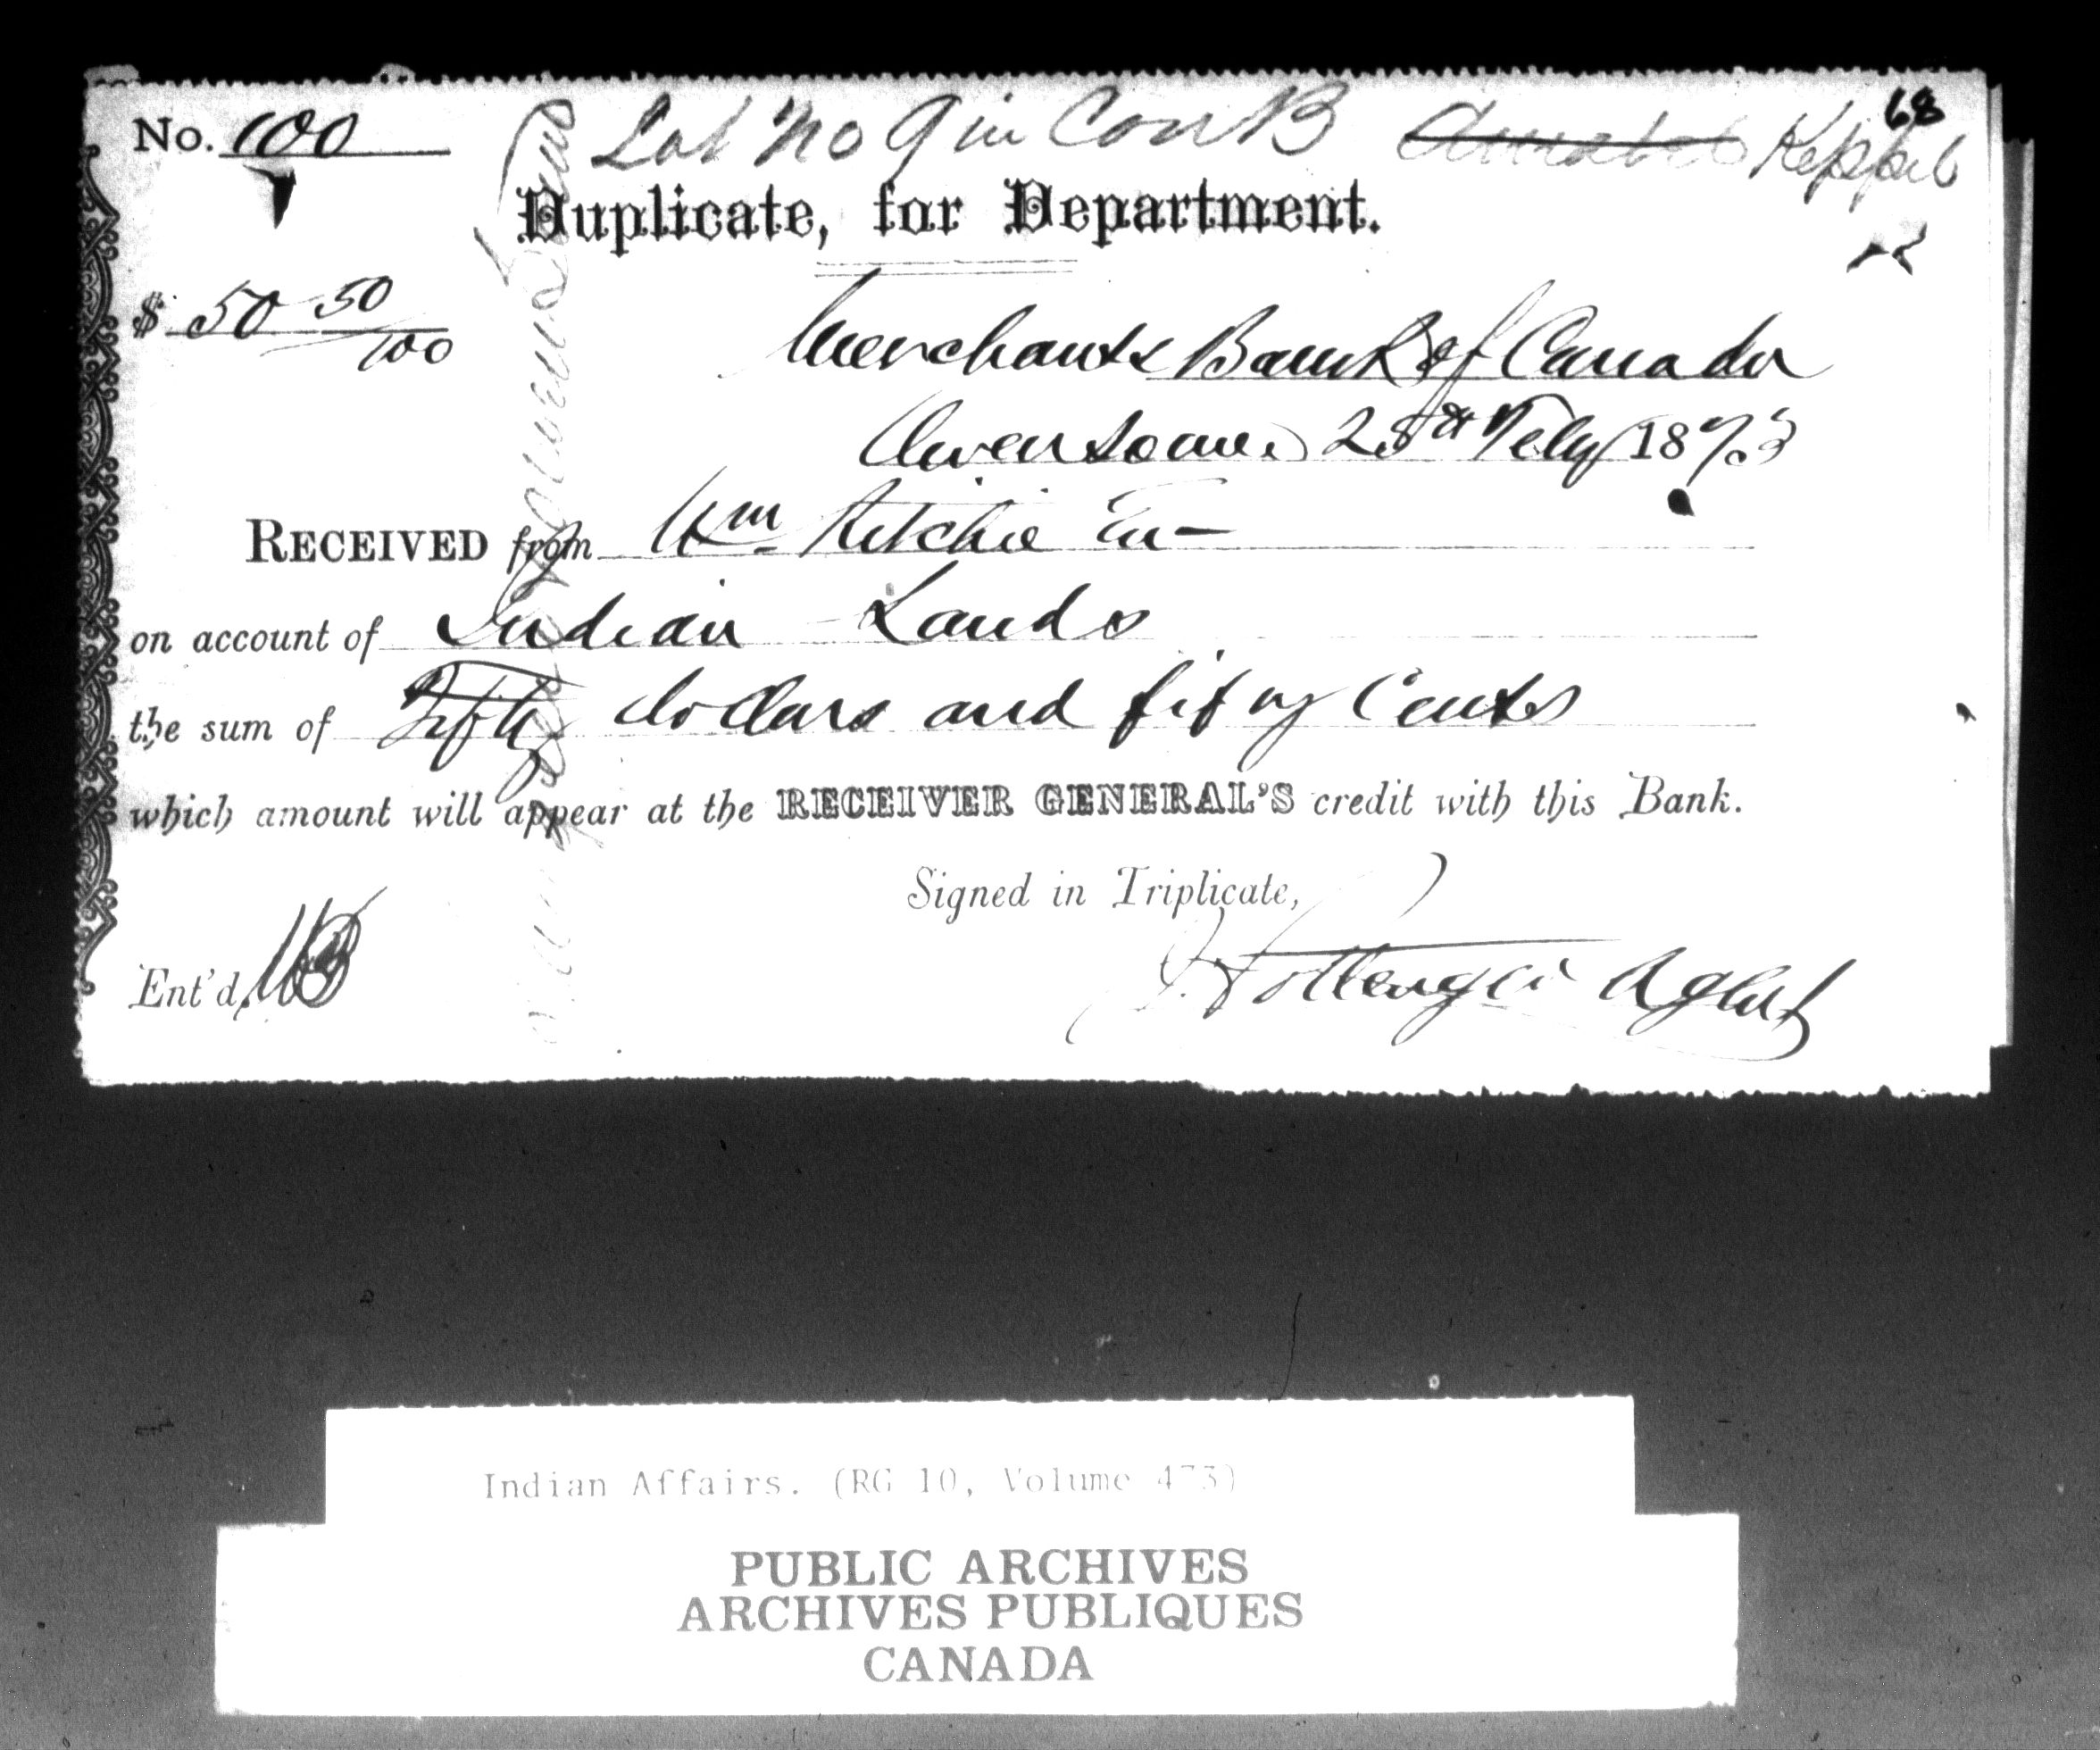 68
No. 100
Lot No 9 in Con B Amabel Keppel
Duplicate, for Department.
$ 50 50/100
Merchants Bank of Canada
Owen Sound 25th Feby 1873
RECEIVED from Wm Ritchie
on account of Indian Lands
the sum of Fifty dollars and fifty Cents
which amount will appear at the RECEIVER GENERAL'S credit with this Bank.
Signed in Triplicate,
Ent'd,
Agent
Indian Affairs. (RG 10, Volume 473)
PUBLIC ARCHIVES
ARCHIVES PUBLIQUES
CANADA